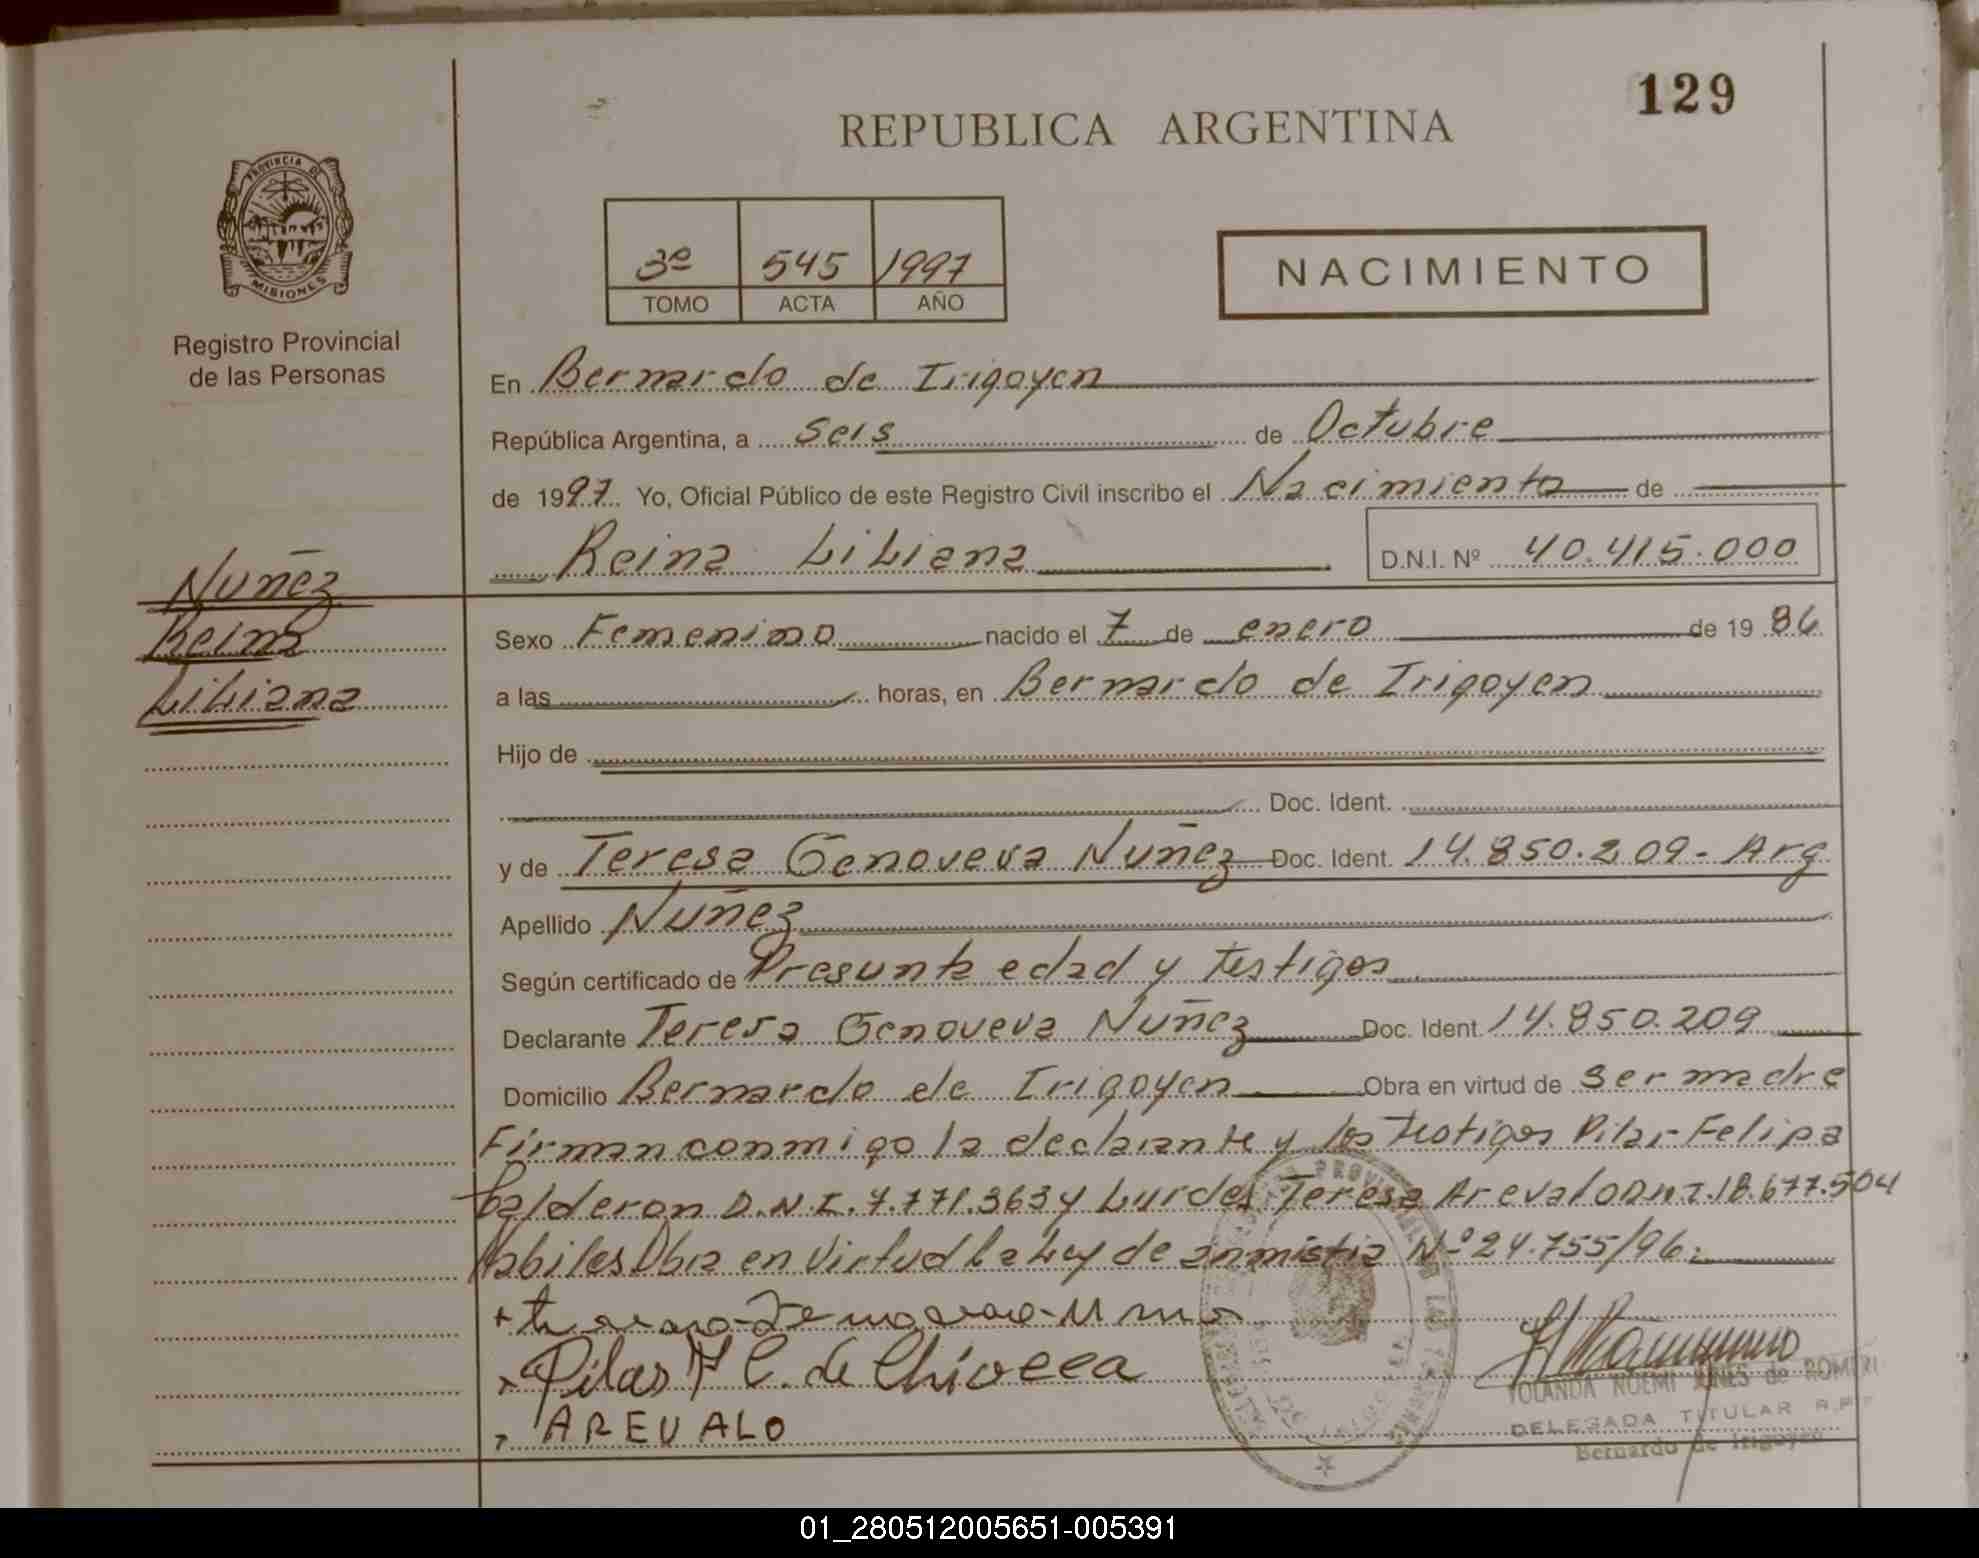 129
REPUBLICA ARGENTINA
PROVINCIA DE
MISIONES
Registro Provincial
de las Personas
3º 545 1997
TOMO ACTA AÑO
NACIMIENTO
En Bernardo de Irigoyen
República Argentina, a Seis de Octubre
de 1997. Yo, Oficial Público de este Registro Civil inscribo el Nacimiento de
Reina Liliana
D.N.I. Nº 40.415.000
Nuñez
Reina
Liliana
Sexo Femenino nacido el 7 de enero de 19 86
a las horas, en Bernardo de Irigoyen
Hijo de
Doc. Ident.
y de Teresa Genoveva Nuñez Doc. Ident. 14.850.209 - Arg
Apellido Nuñez
Según certificado de Presunta edad y testigos
Declarante Teresa Genoveva Nuñez Doc. Ident. 14.850.209
Domicilio Bernardo de Irigoyen Obra en virtud de ser madre
Firman conmigo la declarante y los testigos Pilar Felipa
Calderon D.N.I. 7.771.363 y Lurdes Teresa Arevalo DNI. 18.677.504
Habiles Obra en Virtud La Ley de anmistia Nº 24.755/96.
Pilar F C. de Chiocca
AREVALO
YOLANDA NOEMI de ROMERO
DELEGADA TITULAR R.P.
Bernardo de Irigoyen
01_280512005651-005391